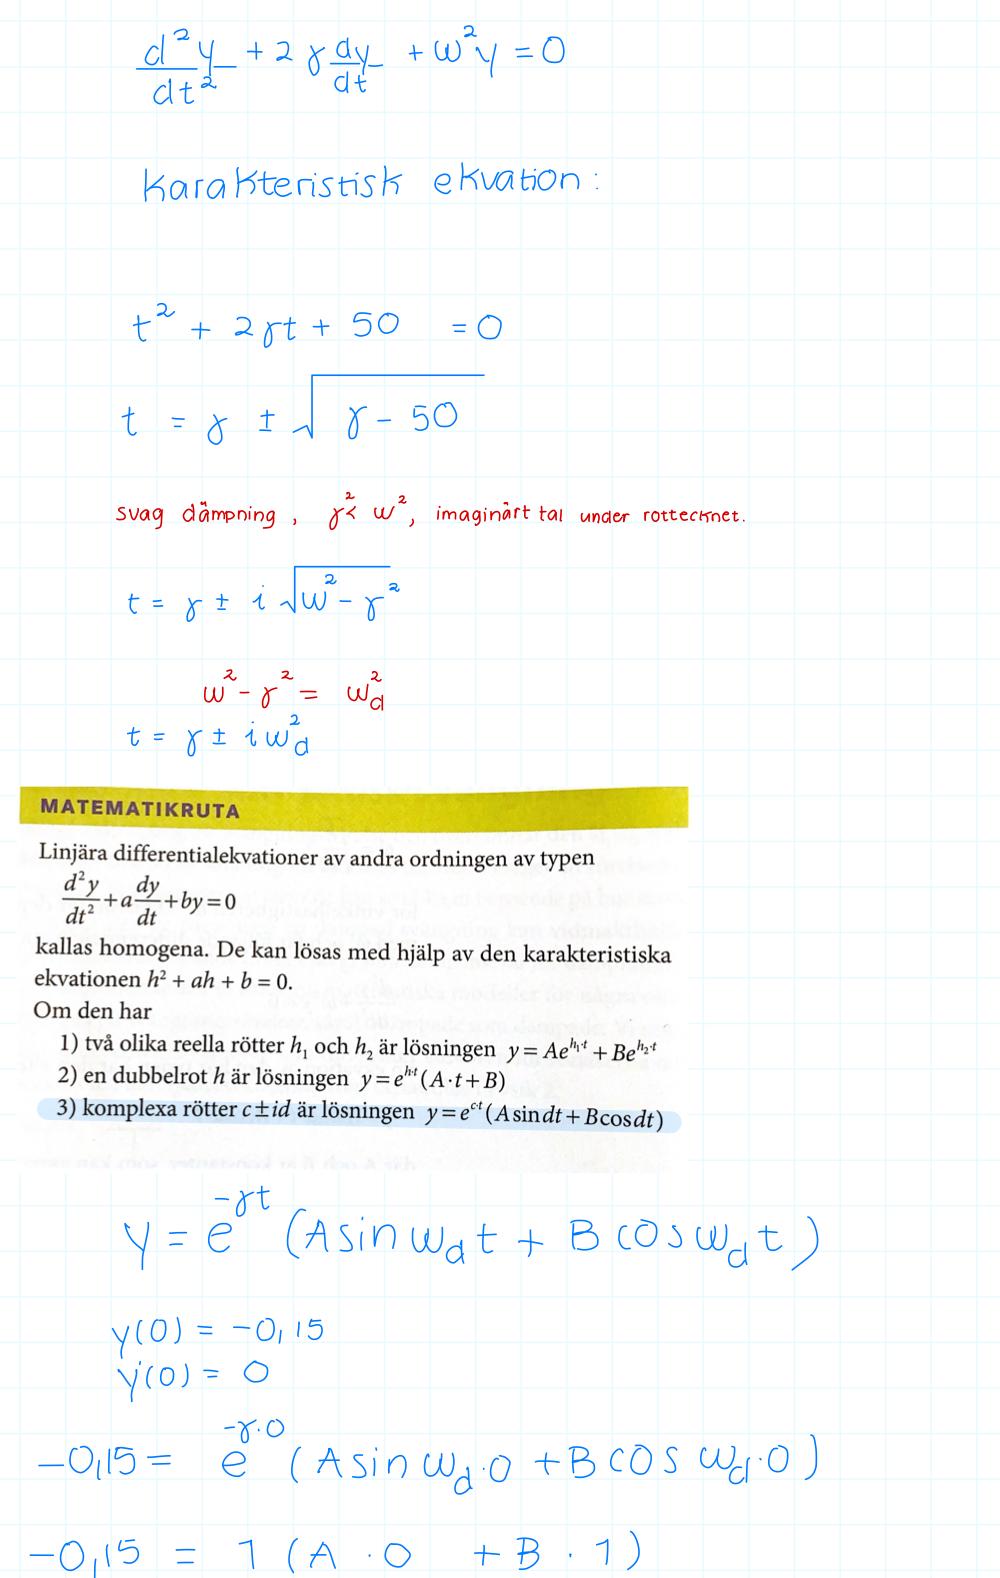 d²y/dt² + 2γ dy/dt + ω²y = 0
Karakteristisk ekvation:
t² + 2γt + 50 = 0
t = γ ± √(γ - 50)
svag dämpning, γ² < ω², imaginärt tal under rottecknet.
t = γ ± i √(ω² - γ²)
ω² - γ² = ω_d²
t = γ ± iω_d²
MATEMATIKRUTA
Linjära differentialekvationer av andra ordningen av typen
d²y/dt² + a dy/dt + by = 0
kallas homogena. De kan lösas med hjälp av den karakteristiska
ekvationen h² + ah + b = 0.
Om den har
1) två olika reella rötter h₁ och h₂ är lösningen y = Ae^(h₁·t) + Be^(h₂·t)
2) en dubbelrot h är lösningen y = e^(h·t) (A·t + B)
3) komplexa rötter c ± id är lösningen y = e^(c·t) (A sin dt + B cos dt)
y = e^(-γt) (A sin ω_d t + B cos ω_d t)
y(0) = -0,15
y'(0) = 0
-0,15 = e^(-γ·0) (A sin ω_d·0 + B cos ω_d·0)
-0,15 = 1 (A · 0 + B · 1)